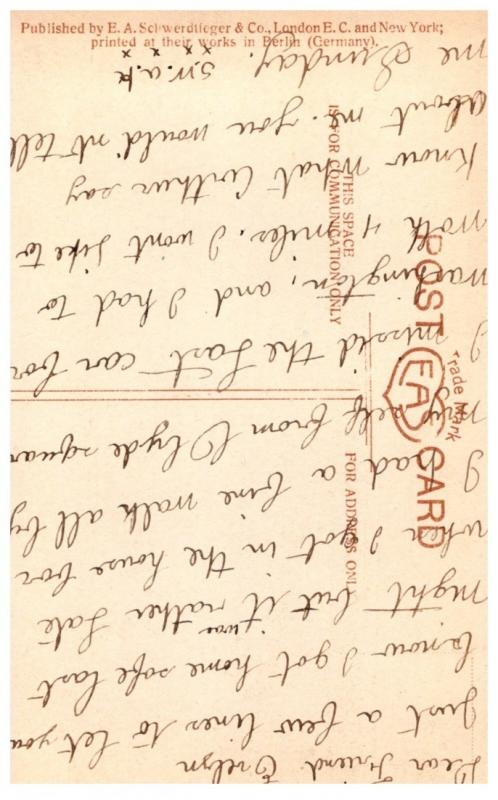 Published by E. A. Schwerdtfeger & Co., London E. C. and New York;
printed at their works in Berlin (Germany).
POST CARD
Trade Mark
EAS
THIS SPACE
IS FOR COMMUNICATION ONLY
FOR ADDRESS ONL
Dear Friend Evelyn
Just a few lines to let you
know I got home safe last
night but it was rather late
when I got in the house for
I had a fine walk all by
my self from Clyde squar
I missid the last car for
and I had to
walk 4 miles. I wont like to
know what Arthur say
about me. you would nt tell
me Sunday.
x x x x
S.W.a.k